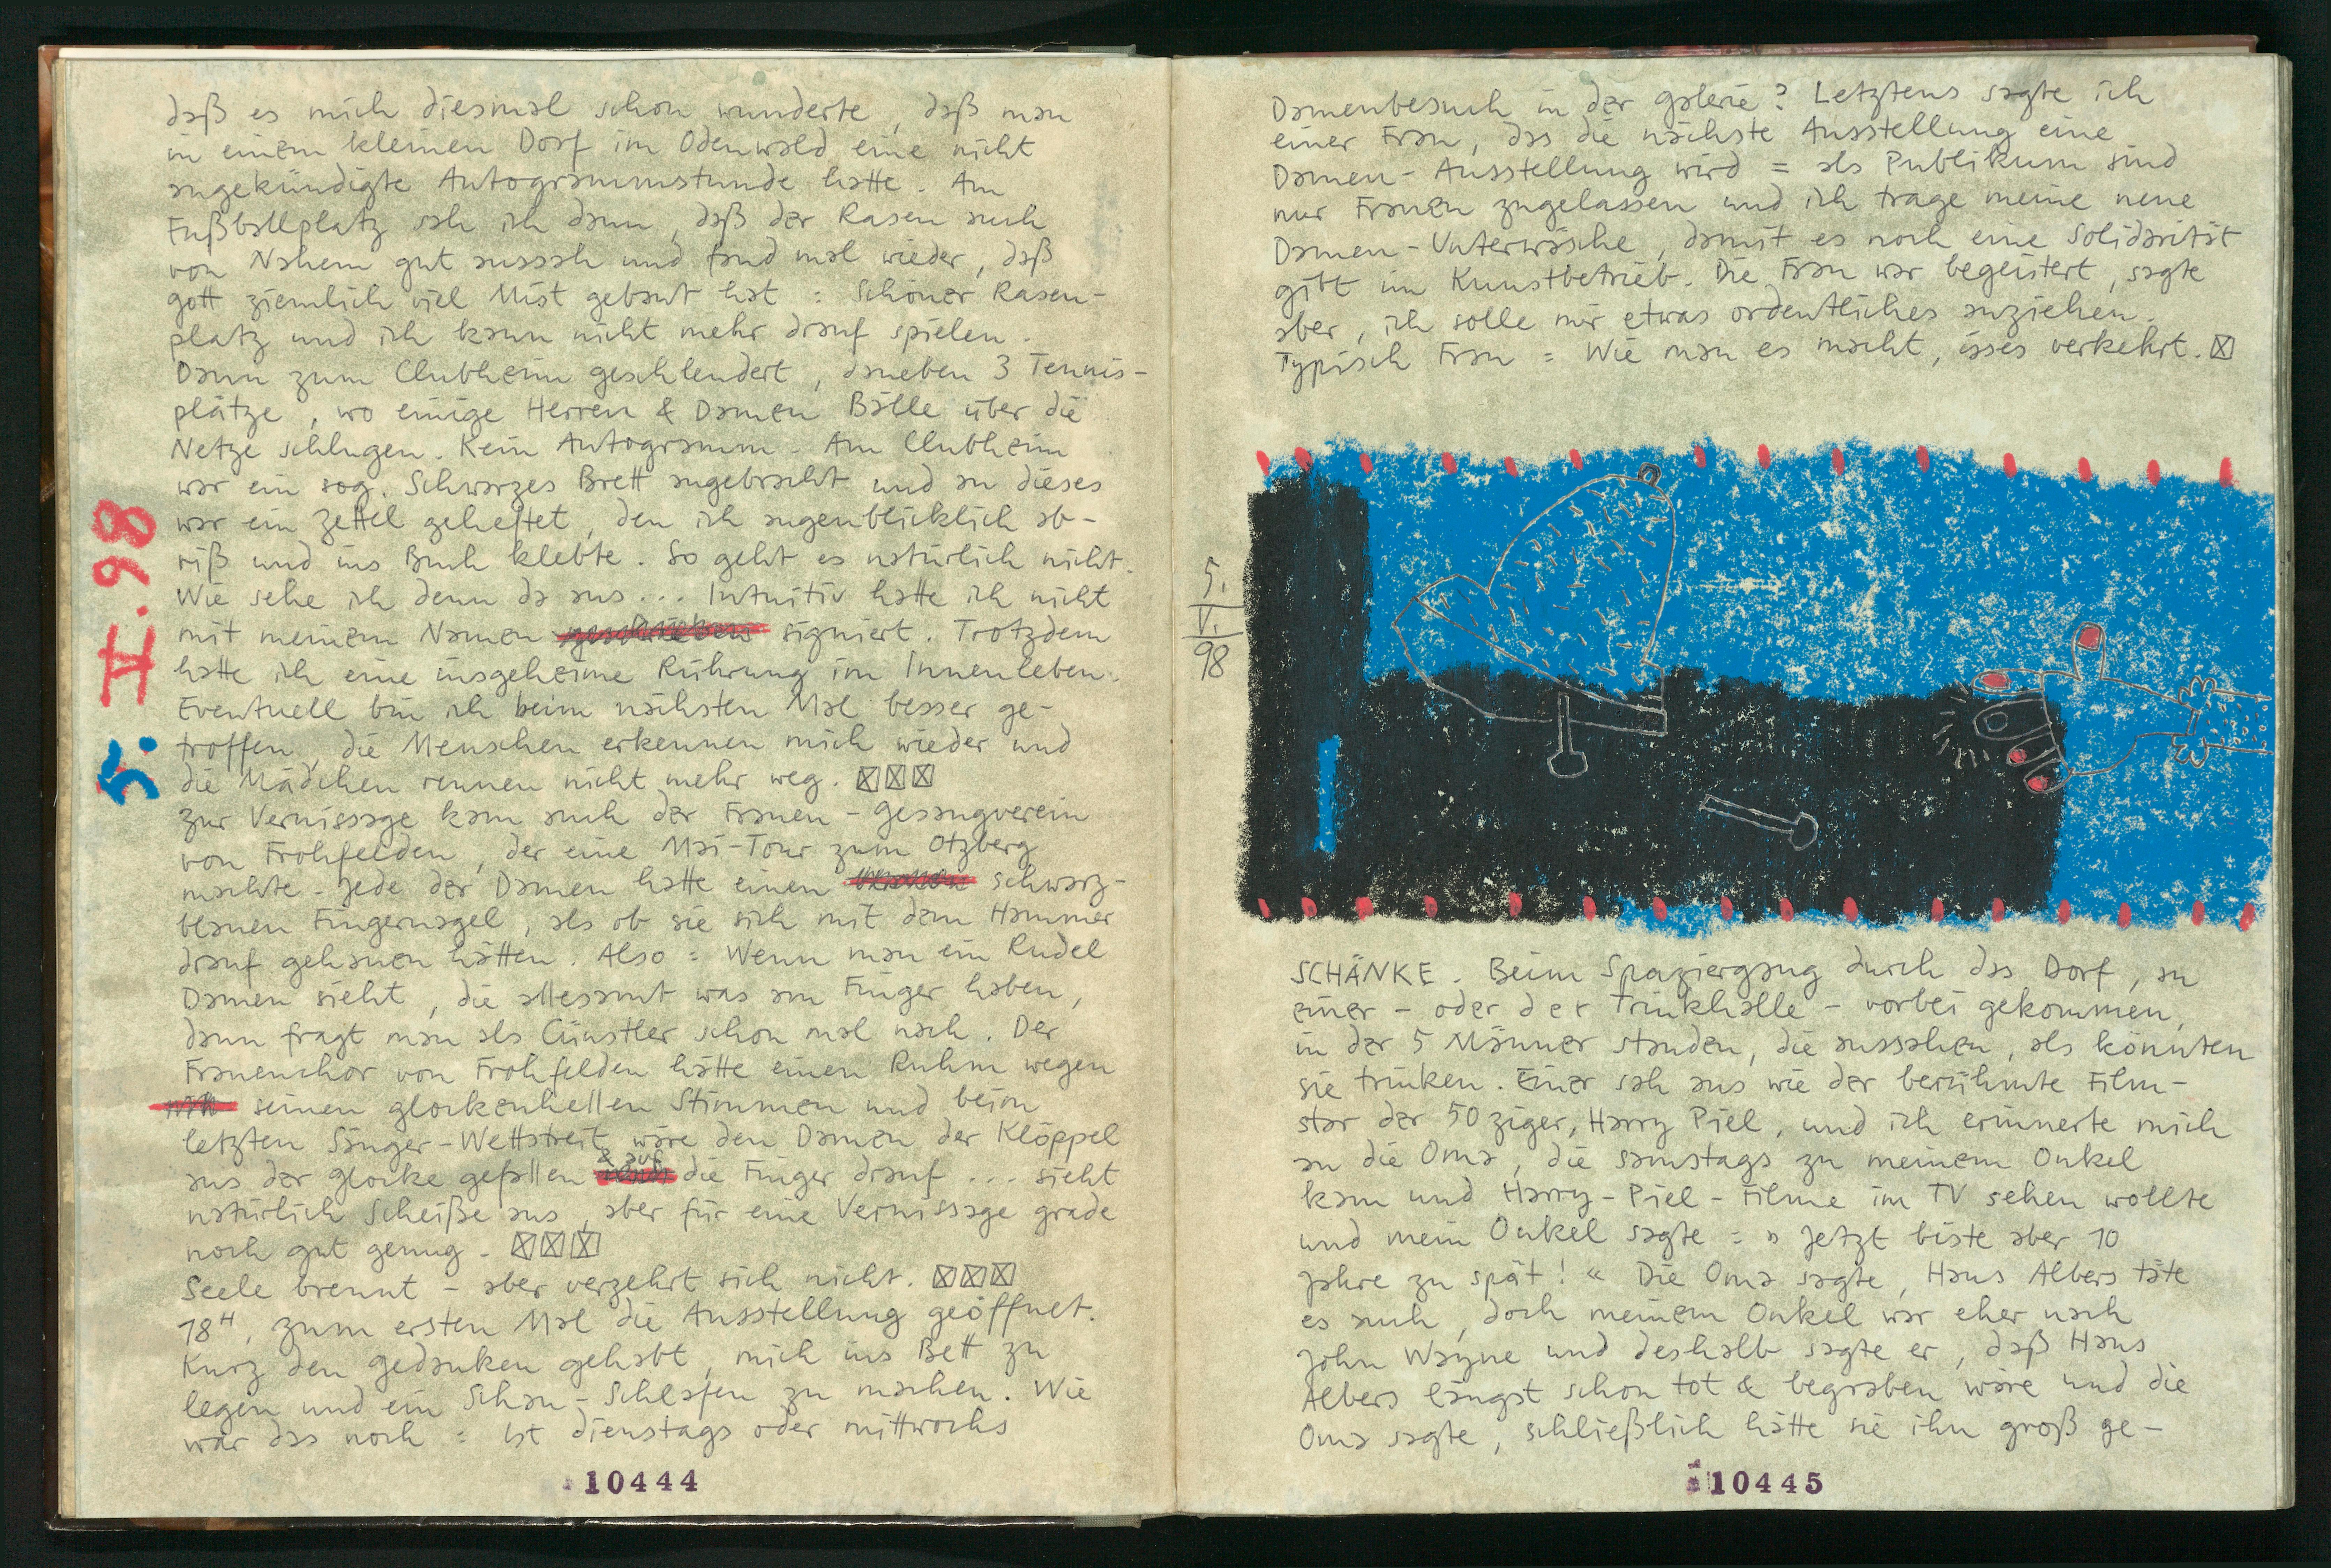 daß es mich diesmal schon wunderte, daß man
in einem kleinen Dorf im Odenwald eine nicht
angekündigte Autogrammstunde hatte. Am
Fußballplatz sah ich dann, daß der Rasen auch
von Nahem gut aussah und fand mal wieder, daß
Gott ziemlich viel Mist gebaut hat: Schöner Rasen-
platz und ich kann nicht mehr drauf spielen.
Dann zum Clubheim geschlendert, daneben 3 Tennis-
plätze, wo einige Herren & Damen Bälle über die
Netze schlugen. Kein Autogramm. Am Clubheim
war ein sog. Schwarzes Brett angebracht und an dieses
war ein Zettel geheftet, den ich augenblicklich ab-
riß und ins Buch klebte. So geht es natürlich nicht.
Wie sehe ich denn da aus... Intuitiv hatte ich nicht
mit meinem Namen geschrieben signiert. Trotzdem
hatte ich eine insgeheime Rührung im Innenleben.
Eventuell bin ich beim nächsten Mal besser ge-
troffen, die Menschen erkennen mich wieder und
die Mädchen rennen nicht mehr weg. ☒☒☒
zur Vernissage kam auch der Frauen-Gesangverein
von Frohfelden, der eine Mai-Tour zum Otzberg
machte. Jede der Damen hatte einen schwarz-
blauen Fingernagel, als ob sie sich mit dem Hammer
drauf gehauen hätten. Also: Wenn man ein Rudel
Damen sieht, die allesamt was am Finger haben,
dann fragt man als Cünstler schon mal nach. Der
Frauenchor von Frohfelden hätte einen Ruhm wegen
seinen glockenhellen Stimmen und beim
letzten Sänger-Wettstreit wäre den Damen der Klöppel
aus der Glocke gefallen & auf die Finger drauf... sieht
natürlich Scheiße aus, aber für eine Vernissage grade
noch gut genug. ☒☒☒
Seele brennt – aber verzehrt sich nicht. ☒☒☒
18ᴴ, zum ersten Mal die Ausstellung geöffnet.
Kurz den Gedanken gehabt, mich ins Bett zu
legen und ein Schau-Schlafen zu machen. Wie
war das noch: Ist dienstags oder mittwochs
5. V. 98
10444
Damenbesuch in der Galerie? Letztens sagte ich
einer Frau, das die nächste Ausstellung eine
Damen-Ausstellung wird = als Publikum sind
nur Frauen zugelassen und ich trage meine neue
Damen-Unterwäsche, damit es noch eine Solidarität
gibt im Kunstbetrieb. Die Frau war begeistert, sagte
aber, ich solle mir etwas ordentliches anziehen.
Typisch Frau: Wie man es macht, isses verkehrt. ☒
5.
V.
98
SCHÄNKE. Beim Spaziergang durch das Dorf, an
einer – oder der Trinkhalle – vorbei gekommen,
in der 5 Männer standen, die aussahen, als könnten
sie trinken. Einer sah aus wie der berühmte Film-
star der 50ziger, Harry Piel, und ich erinnerte mich
an die Oma, die samstags zu meinem Onkel
kam und Harry-Piel-Filme im TV sehen wollte
und mein Onkel sagte: » Jetzt biste aber 10
Jahre zu spät! « Die Oma sagte, Hans Albers täte
es auch, doch meinem Onkel war eher nach
John Wayne und deshalb sagte er, daß Hans
Albers längst schon tot & begraben wäre und die
Oma sagte, schließlich hätte sie ihn groß ge-
10445